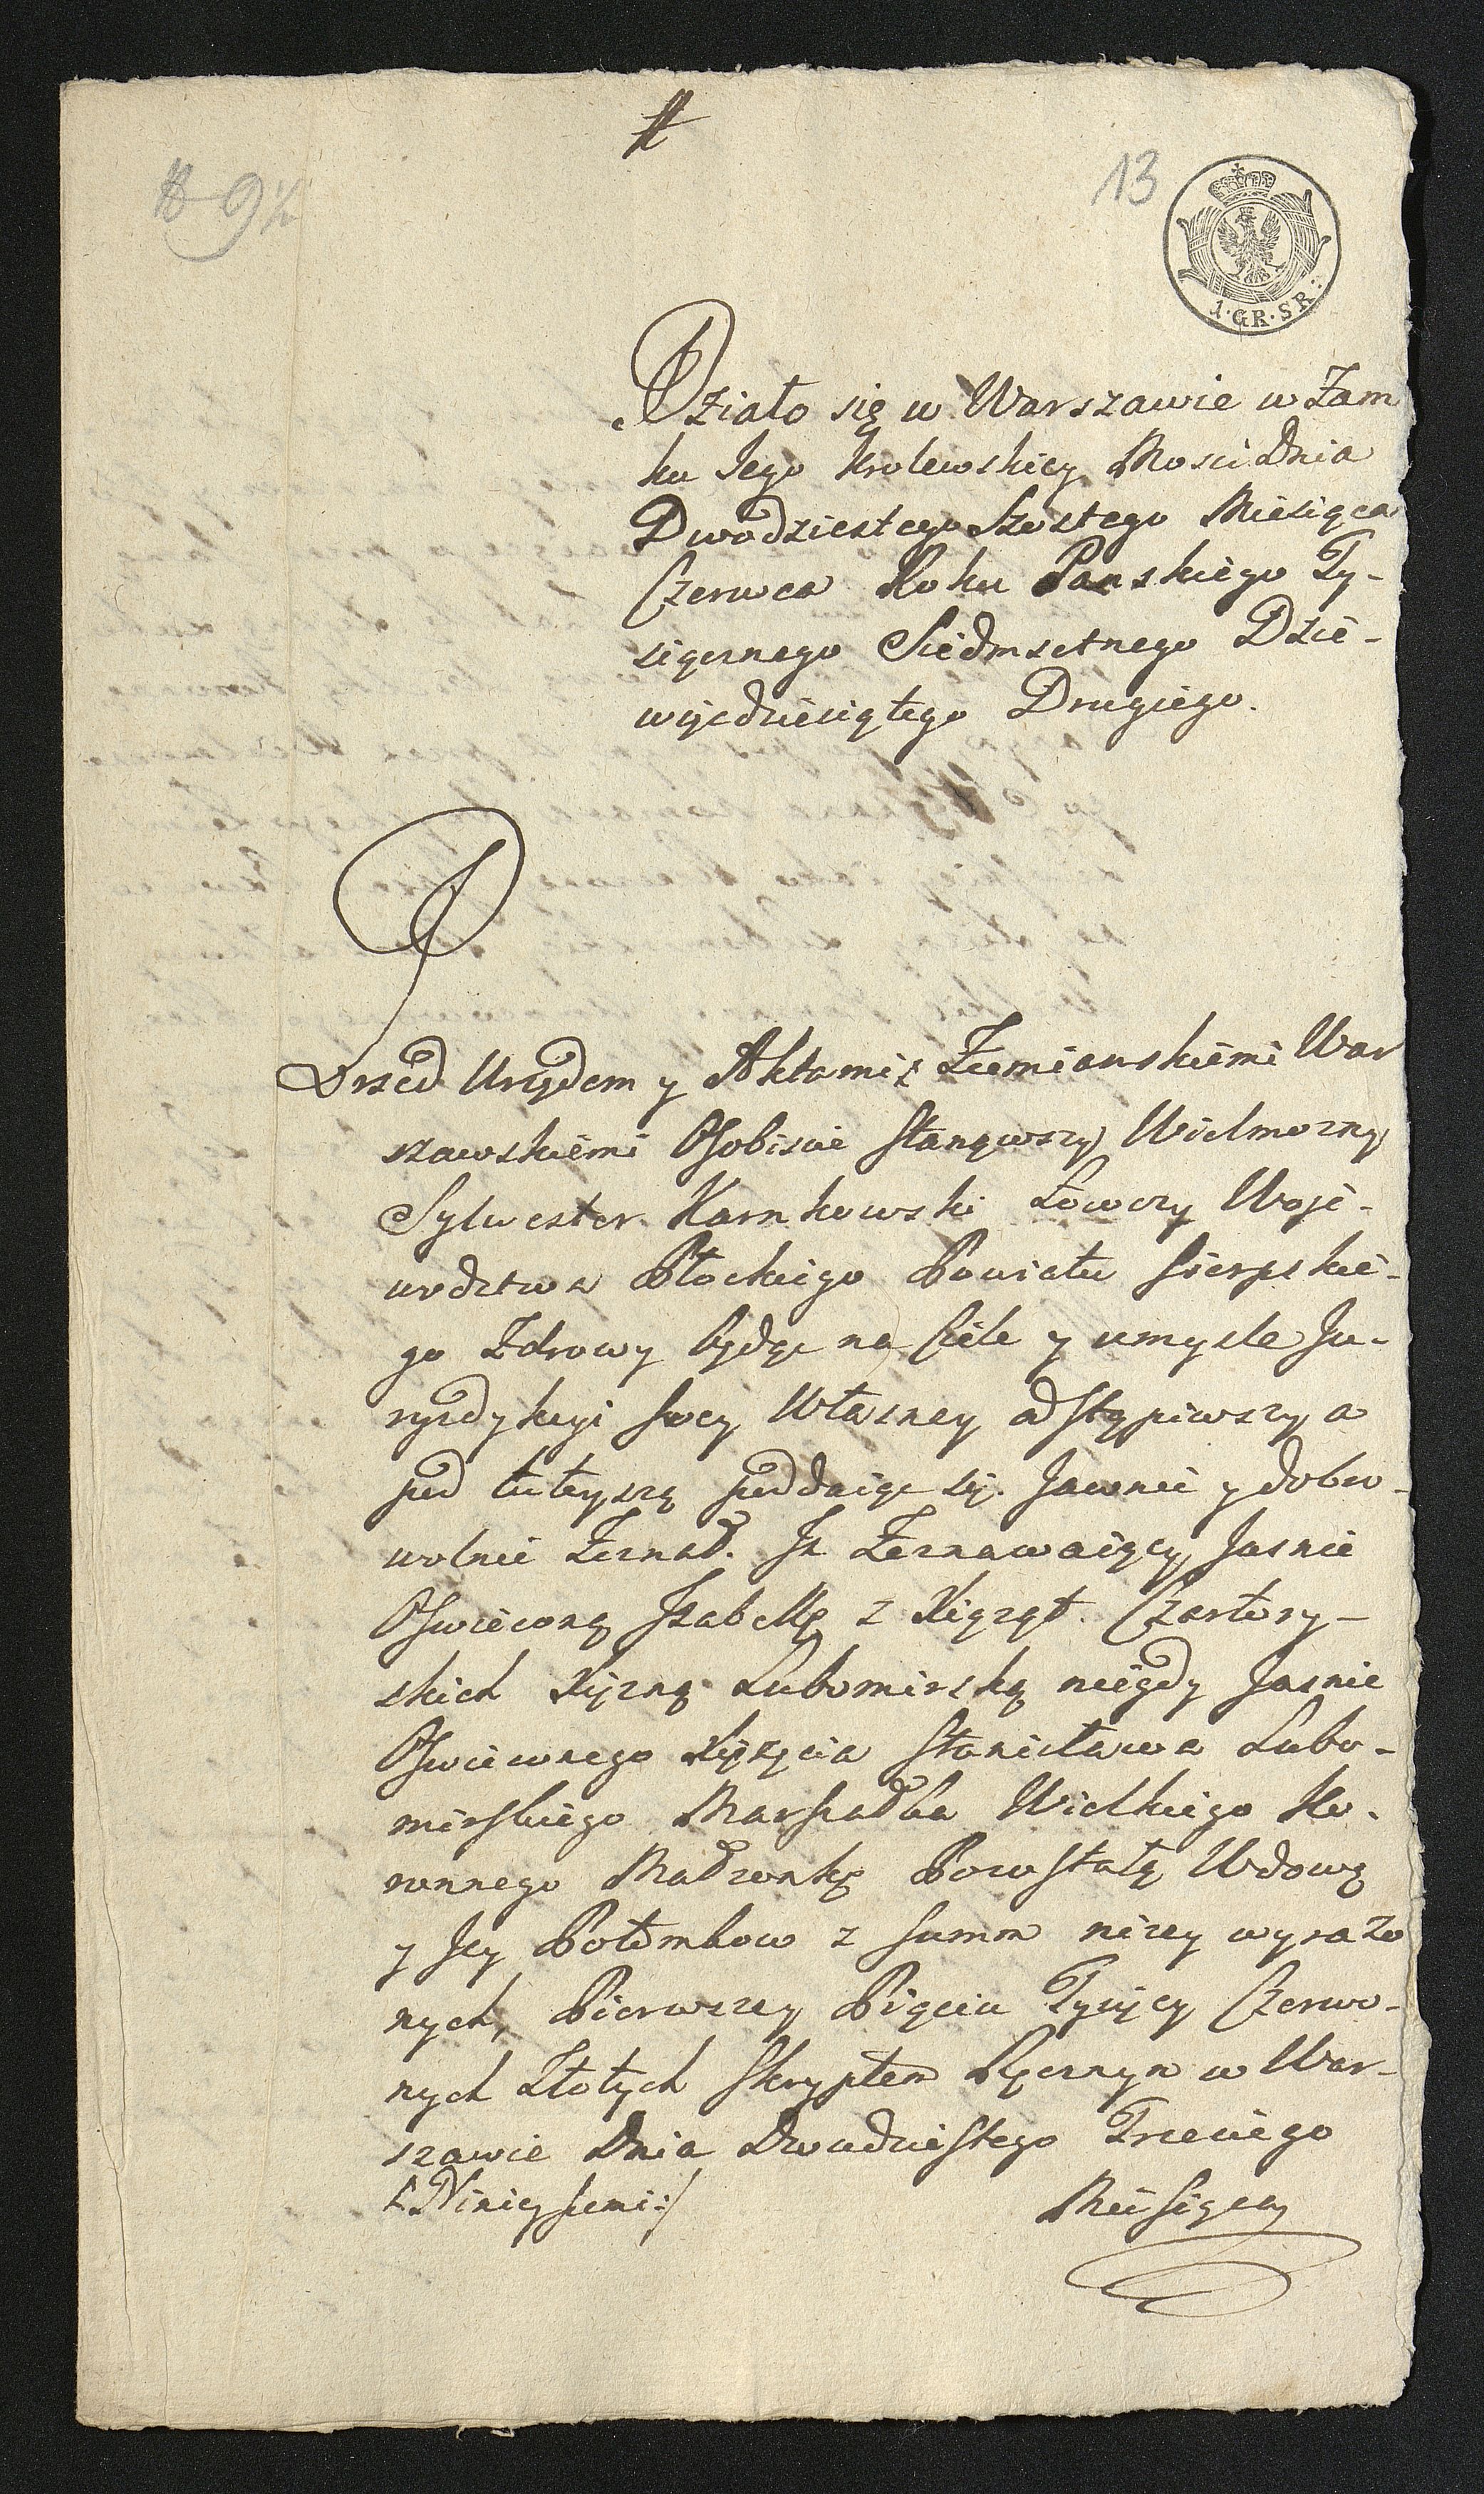 13
1·GR·SR:
Działo się w Warszawie w Zam
ku Jego Krolewskiey Mosci Dnia
Dwudziestego Szostego Miesiąca
Czerwca Roku Panskiego Ty-
siącznego Siedmsetnego Dzie-
więćdziesiątego Drugiego.
Przed Urzędem y Aktami Ziemianskiemi War
szawskiemi Osobiscie stanąwszy Wielmozny
Sylwester Karnkowski Łowczy Woje-
wodztwa Płockiego Powiatu Sierpskie-
go Zdrowy będąc na Ciele y umysle Ju-
ryzdykcyi swey Własney odstąpiwszy a
pod tuteyszą poddaiąc się. Jawnie y dobro-
wolnie Zeznał. Iż Zeznawaiący Jasnie
Oswieconą Izabellę z Xiąząt Czartory-
skich Xięzną Lubomirską niegdy Jasnie
Oswieconego Xiązęcia Stanisława Lubo-
mirskiego Marszałka Wielkiego Ko-
ronnego Małzonkę Pozostałą Wdowę
y Jey Potomkow z summ nizey wyrazo
nych, Pierwszey Pięciu Tysięcy Czerwo-
nych Złotych Skryptem Ręcznym w War-
szawie Dnia Dwudziestego Trzeciego
/:Ninieyszemi:/
Miesiąca